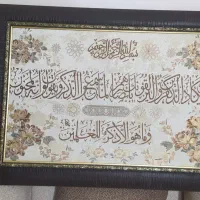 بسم الله الرحمن الرحيم
وإن يكاد الذين كفروا ليزلقونك بأبصارهم لما سمعوا الذكر ويقولون إنه لمجنون
وما هو إلا ذكر للعالمين